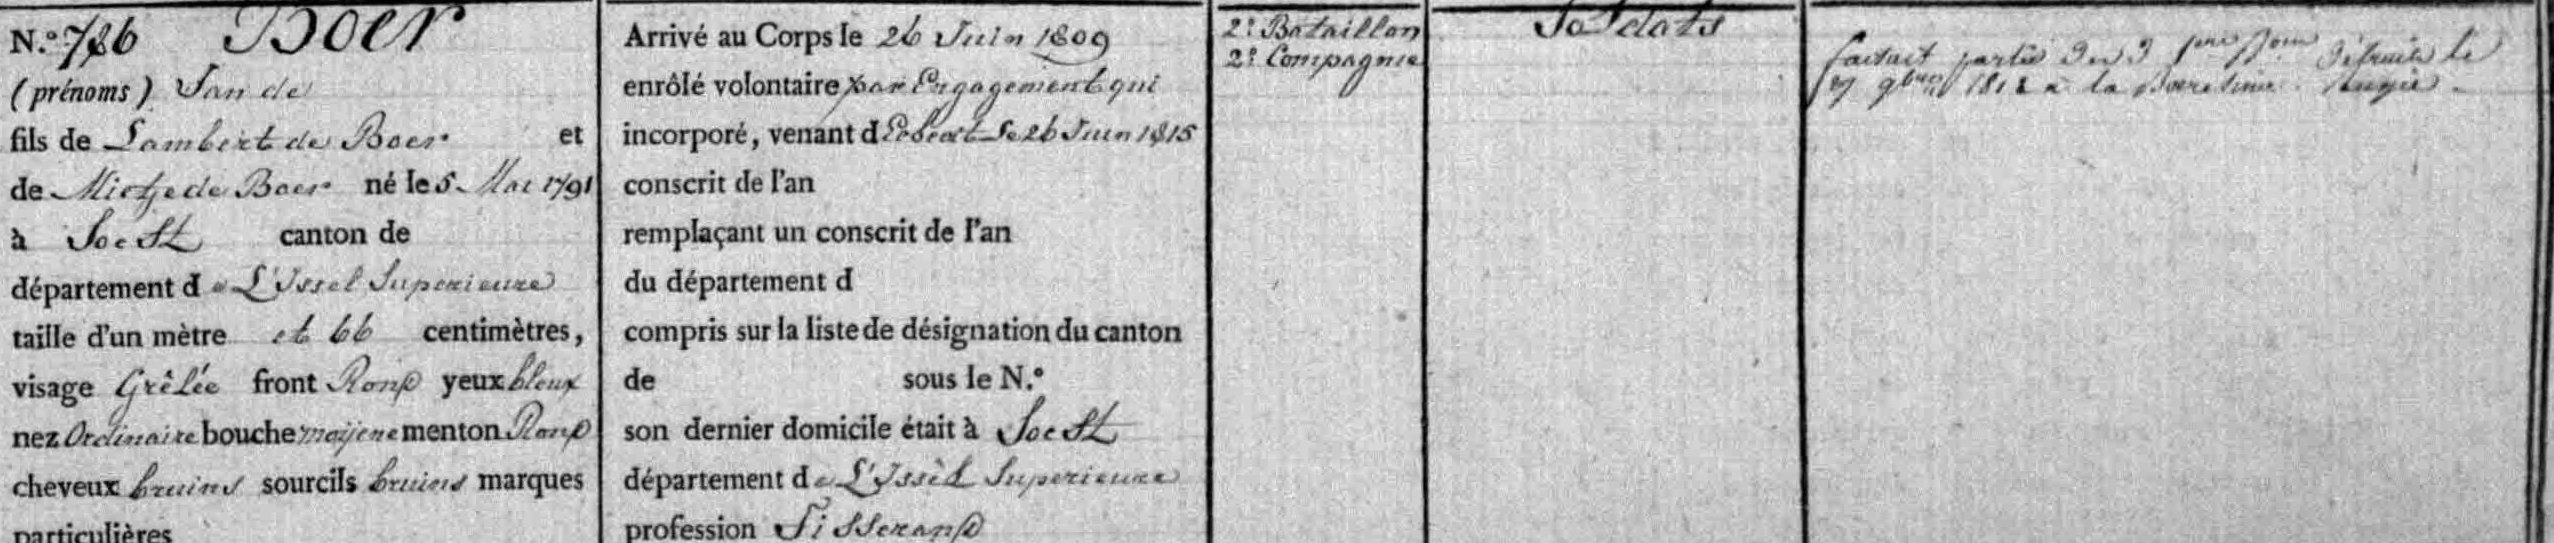 N.º 726 Boer
(prénoms) Jan de
fils de Lambert de Boer et
de Mietje de Boer né le 5 Mai 1791
à Soest canton de
département de L'Issel Superieure
taille d'un mètre et 66 centimètres,
visage Grêlée front Rond yeux bleux
nez Ordinaire bouche moyene menton Rond
cheveux bruins sourcils bruins marques
particulières
Arrivé au Corps le 26 Juin 1809
enrôlé volontaire par Engagement qui
incorporé, venant d le 26 Juin 1815
conscrit de l'an
remplaçant un conscrit de l'an
du département d
compris sur la liste de désignation du canton
de sous le N.º
son dernier domicile était à Soest
département de L'Issèl Superieure
profession Tisserand
2e Bataillon
2e Compagnie
Soldats
faisait partie des 3 détruits le
9bre 1812 a la